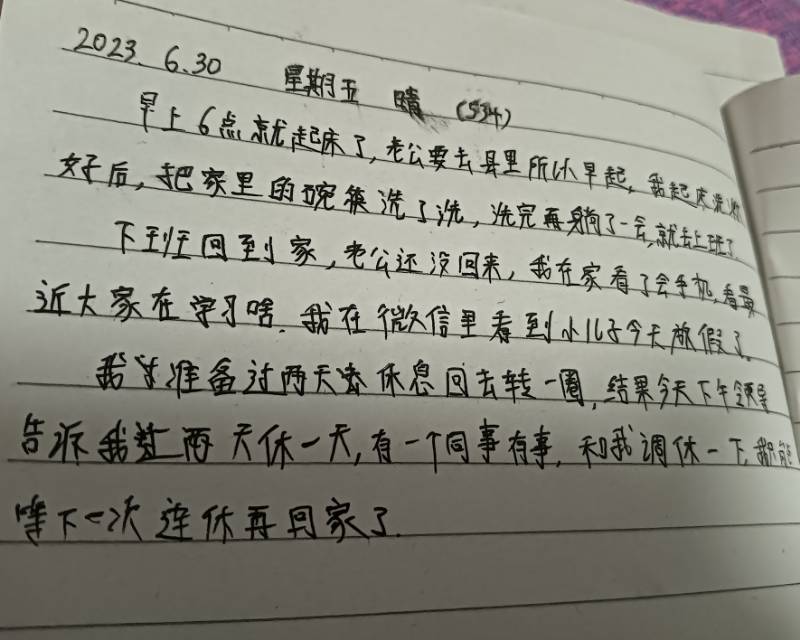 2023. 6.30 星期五 晴 (534)
早上6点就起床了,老公要去县里所以早起,我起床洗漱
好后,把家里的碗筷洗了洗,洗完再躺了一会,就去上班了
下班回到家,老公还没回来,我在家看了会手机,看最
近大家在学习啥.我在微信里看到小儿子今天放假了.
我准备过两天休息回去转一圈,结果今天下午领导
告诉我这两天休一天,有一个同事有事,和我调休一下,我只能
等下一次连休再回家了.